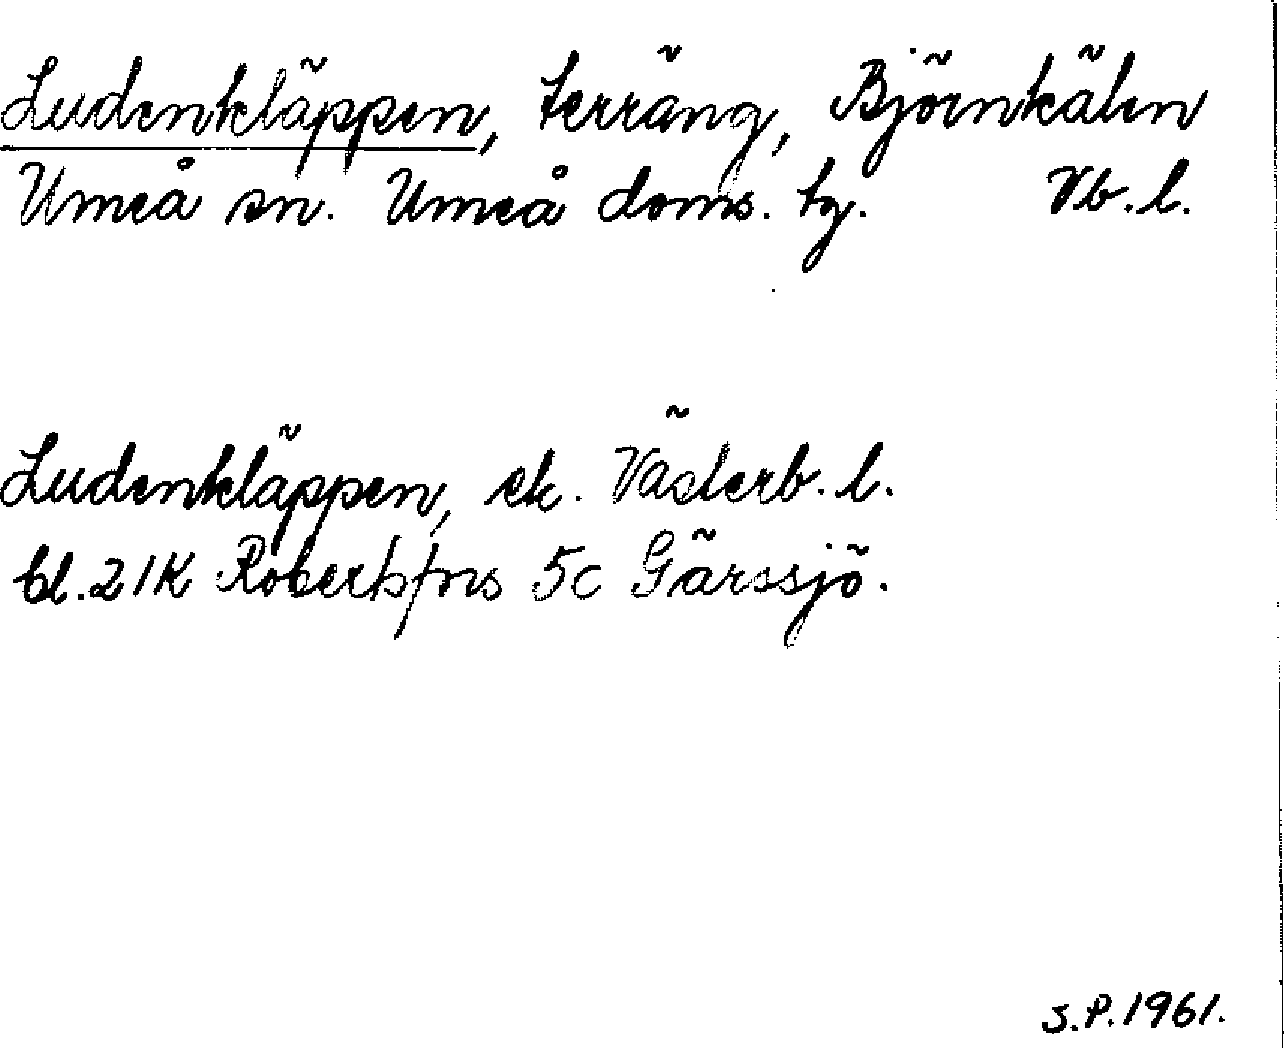 Ludenkläppen, terräng, Björnkälen
Umeå sn. Umeå doms. tg. Vb.l.
Ludenkläppen, ek. Västerb. l.
bl. 21K Robertsfors 5c Gärssjö.
S.P. 1961.